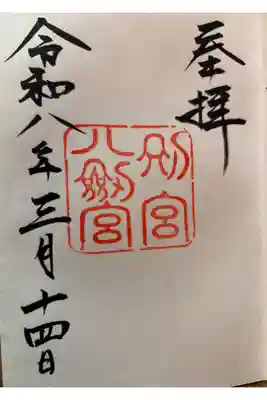 奉拝
別宮
八剱宮
令和八年三月十四日